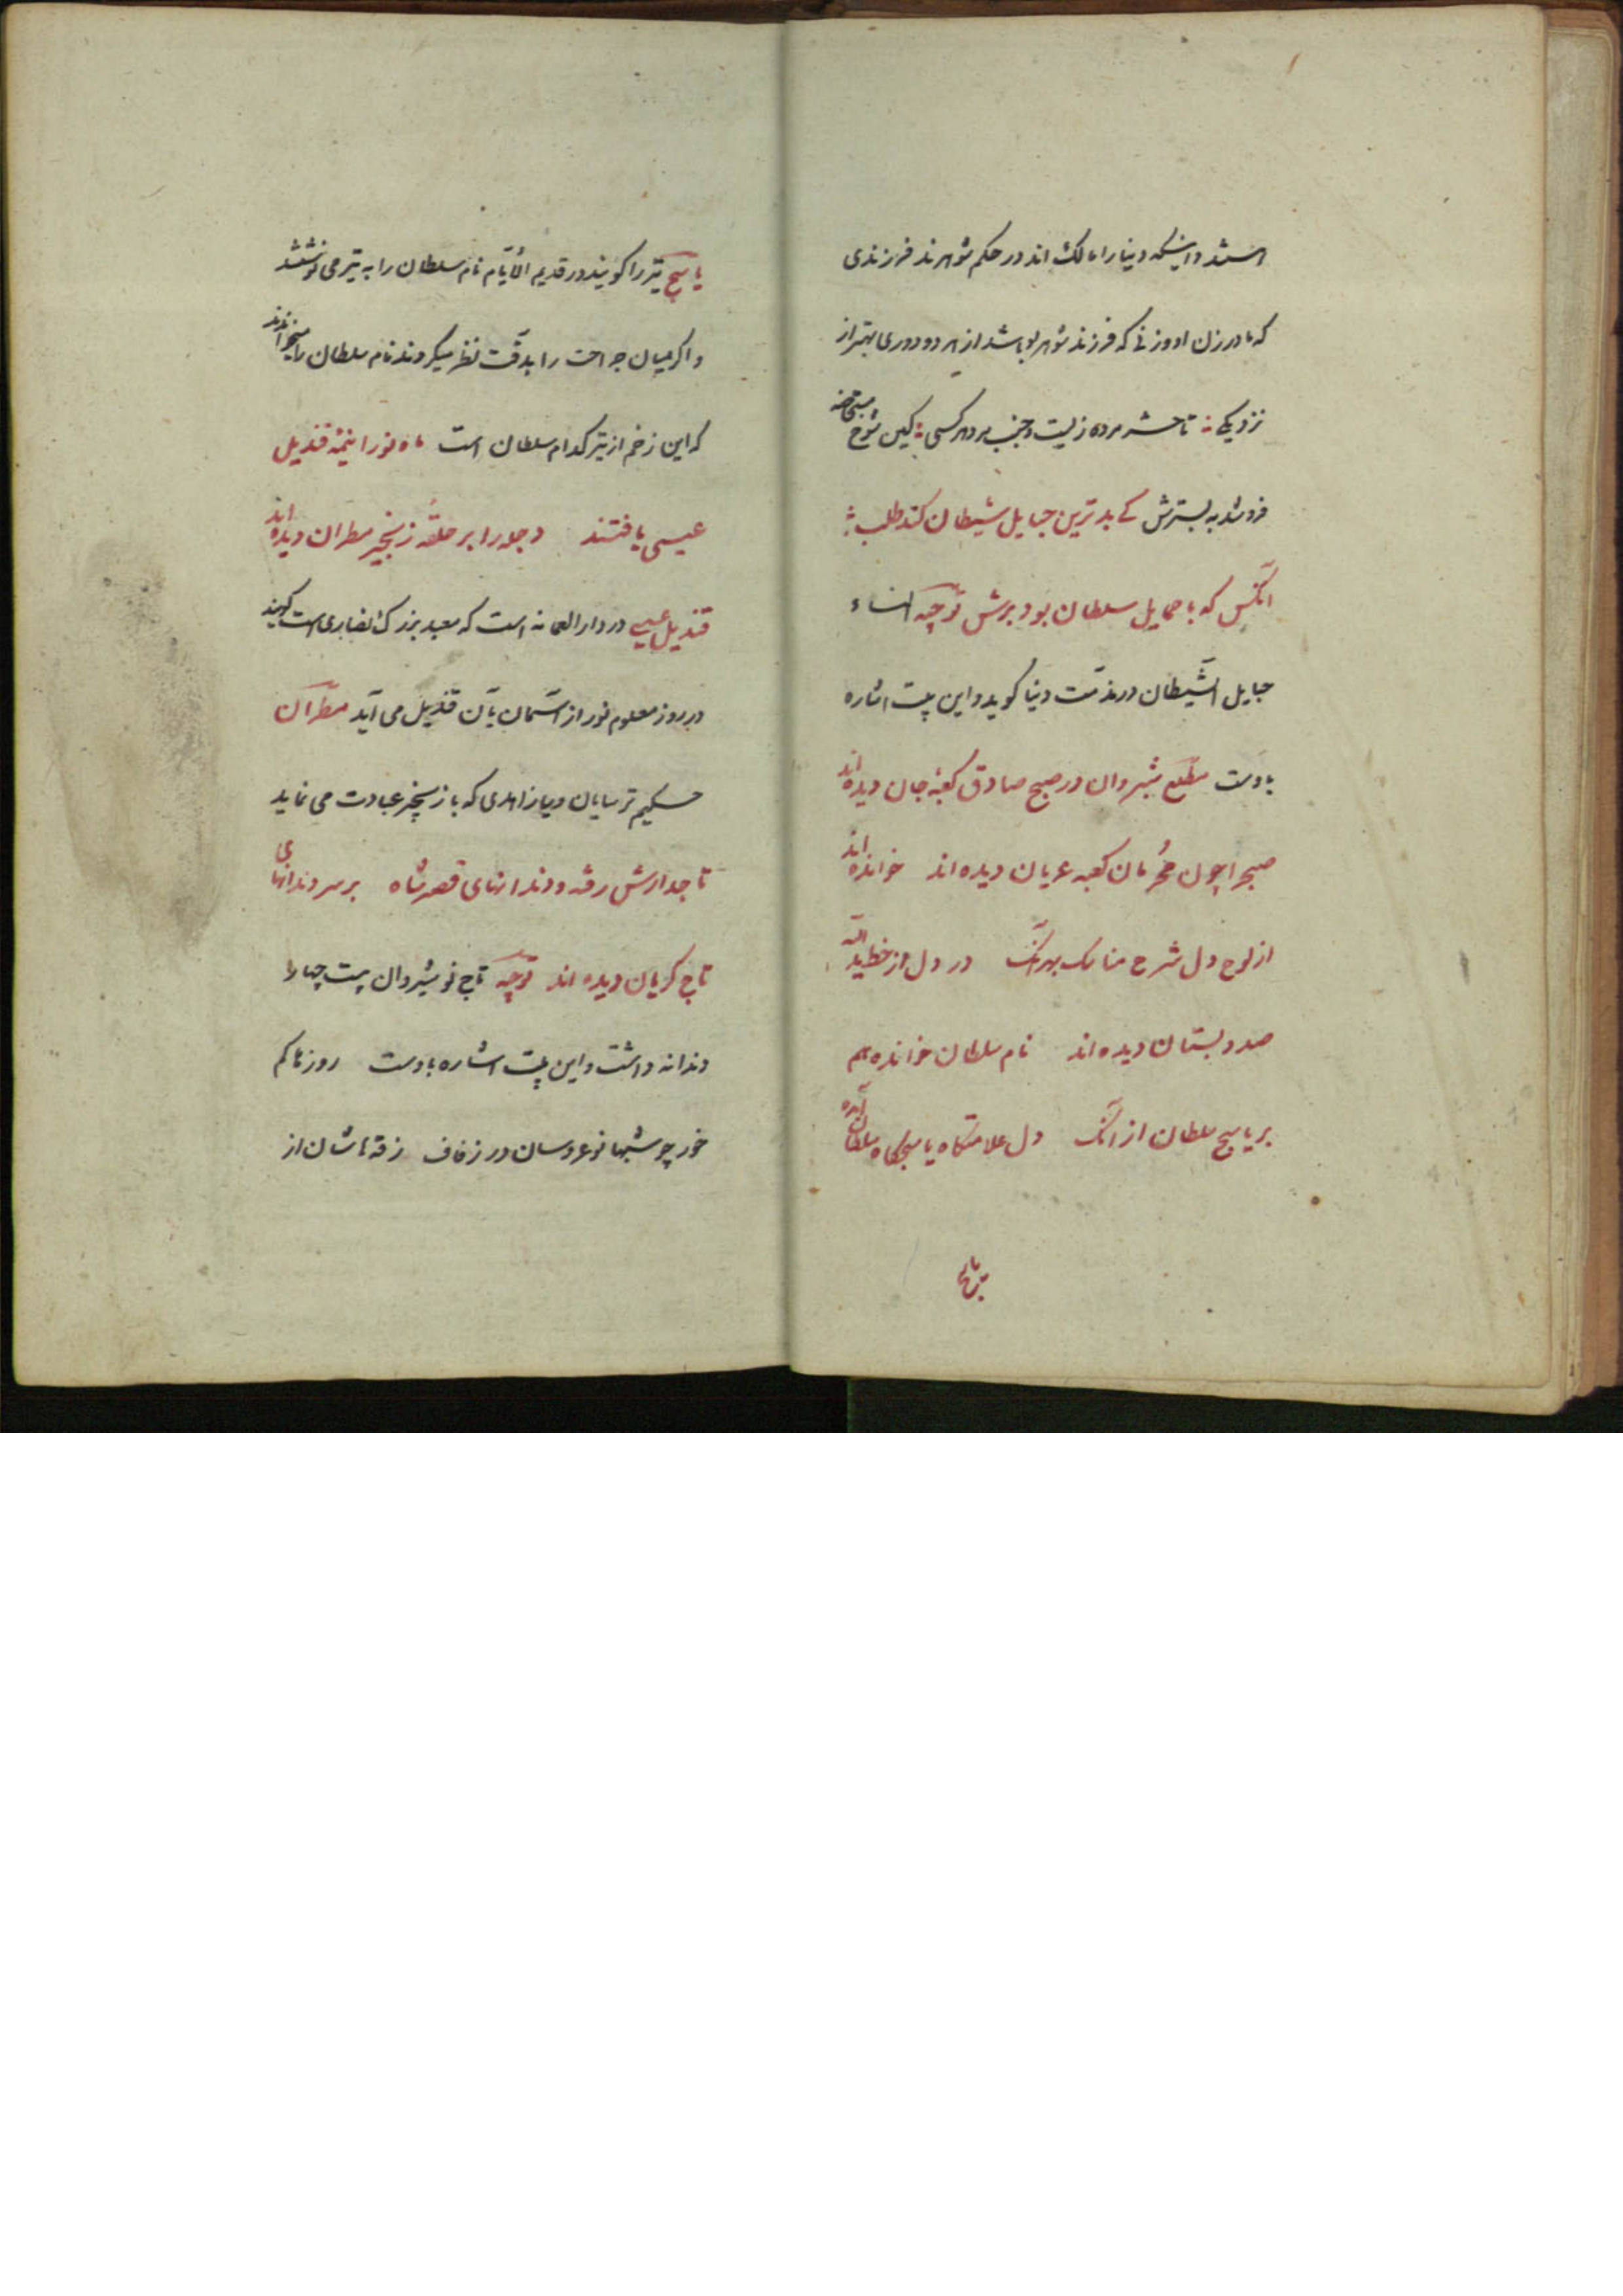 هستند و اینکه دنیا را مالک اند در حکم شوهرند فرزندی
که مادر زن او و زنی که فرزند شوهر او باشد از هر دو دوری بهتر از
نزدیکی تا حشر مرده زیست و جنب مرد هر کسی کین شوخ
فرو شد به بسترش کی بدترین حبایل شیطان کند طلب
آنکس که با حمایل سلطان بود برش توجیه النساء
حبایل الشیطان در مذمت دنیا گوید و این بیت اشاره
باوست مطلع شبروان در صبح صادق کعبه جان دیده اند
صبح را چون محرمان کعبه عریان دیده اند خوانده اند
از لوح دل شرح مناسک بهر آنک در دل از خط ید الله
صد دبستان دیده اند نام سلطان خوانده هم
بر یاسج سلطان از آنک دل علامتگاه یاسجهای سلطان دیده اند
یاسج تیر را گویند در قدیم الایام نام سلطان را به تیر می نوشتند
و اگر میان جراحت را بدقت نظر میکردند نام سلطان را میخواندند
که این زخم از تیر کدام سلطان است ماه نو را نیمه قندیل
عیسی یافتند دجله را بر حلقه زنجیر مطران دیده اند
قندیل عیسی در دار القمامه است که معبد بزرگ نصاری است گویند
در روز معلوم نور از آسمان بآن قندیل می آید مطران
حکیم ترسایان و یا زاهدی که با زنجیر عبادت می نماید
تاجدارش رفته و دندانهای قصر شاه بر سر دندانهای
تاج گریان دیده اند توجیه تاج نوشیروان بیست چهار
دندانه داشت و این بیت اشاره باوست روزها کم
خور چو شبها نو عروسان در زفاف زقه هاشان از